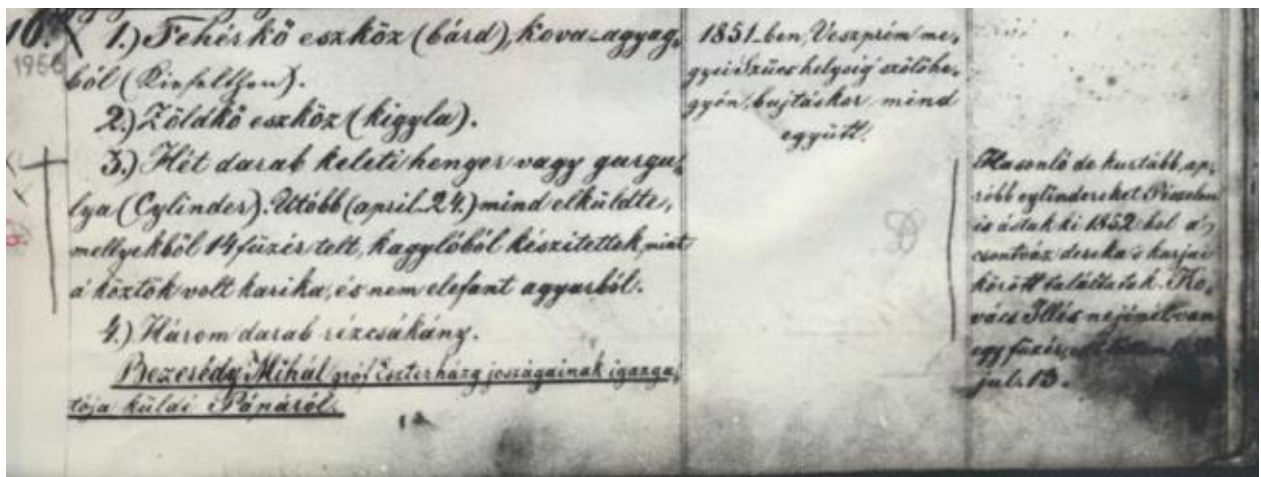 10.
1966
1.) Fehérkő eszköz (bárd), kova-agyag-
ból (Kiefelthon).
2.) Zöldkő eszköz (kigyla).
3.) Hét darab keleti henger vagy gurgu-
lya (Cylinder). Utóbb (april. 24.) mind elküldte,
mellyekből 14 füzér telt, kagylóból készitettek, mint
a' köztök volt karika, és nem elefant agyarból.
4.) Három darab rézcsákány.
Bezerédy Mihál gróf Eszterházy joszágainak igazga-
tója küldi Pápáról.
1851-ben, Veszprém me-
gyei Szücs helység szölöhe-
gyén, bujtáskor, mind
együtt.
Hasonló de kurtább, ap-
róbb cylindereket
is ástak ki 1852 hol a'
csontváz dereka 's karjai
körött találtatak. Ko-
vács Illés nejénél van
egy füzér,
jul. 13.